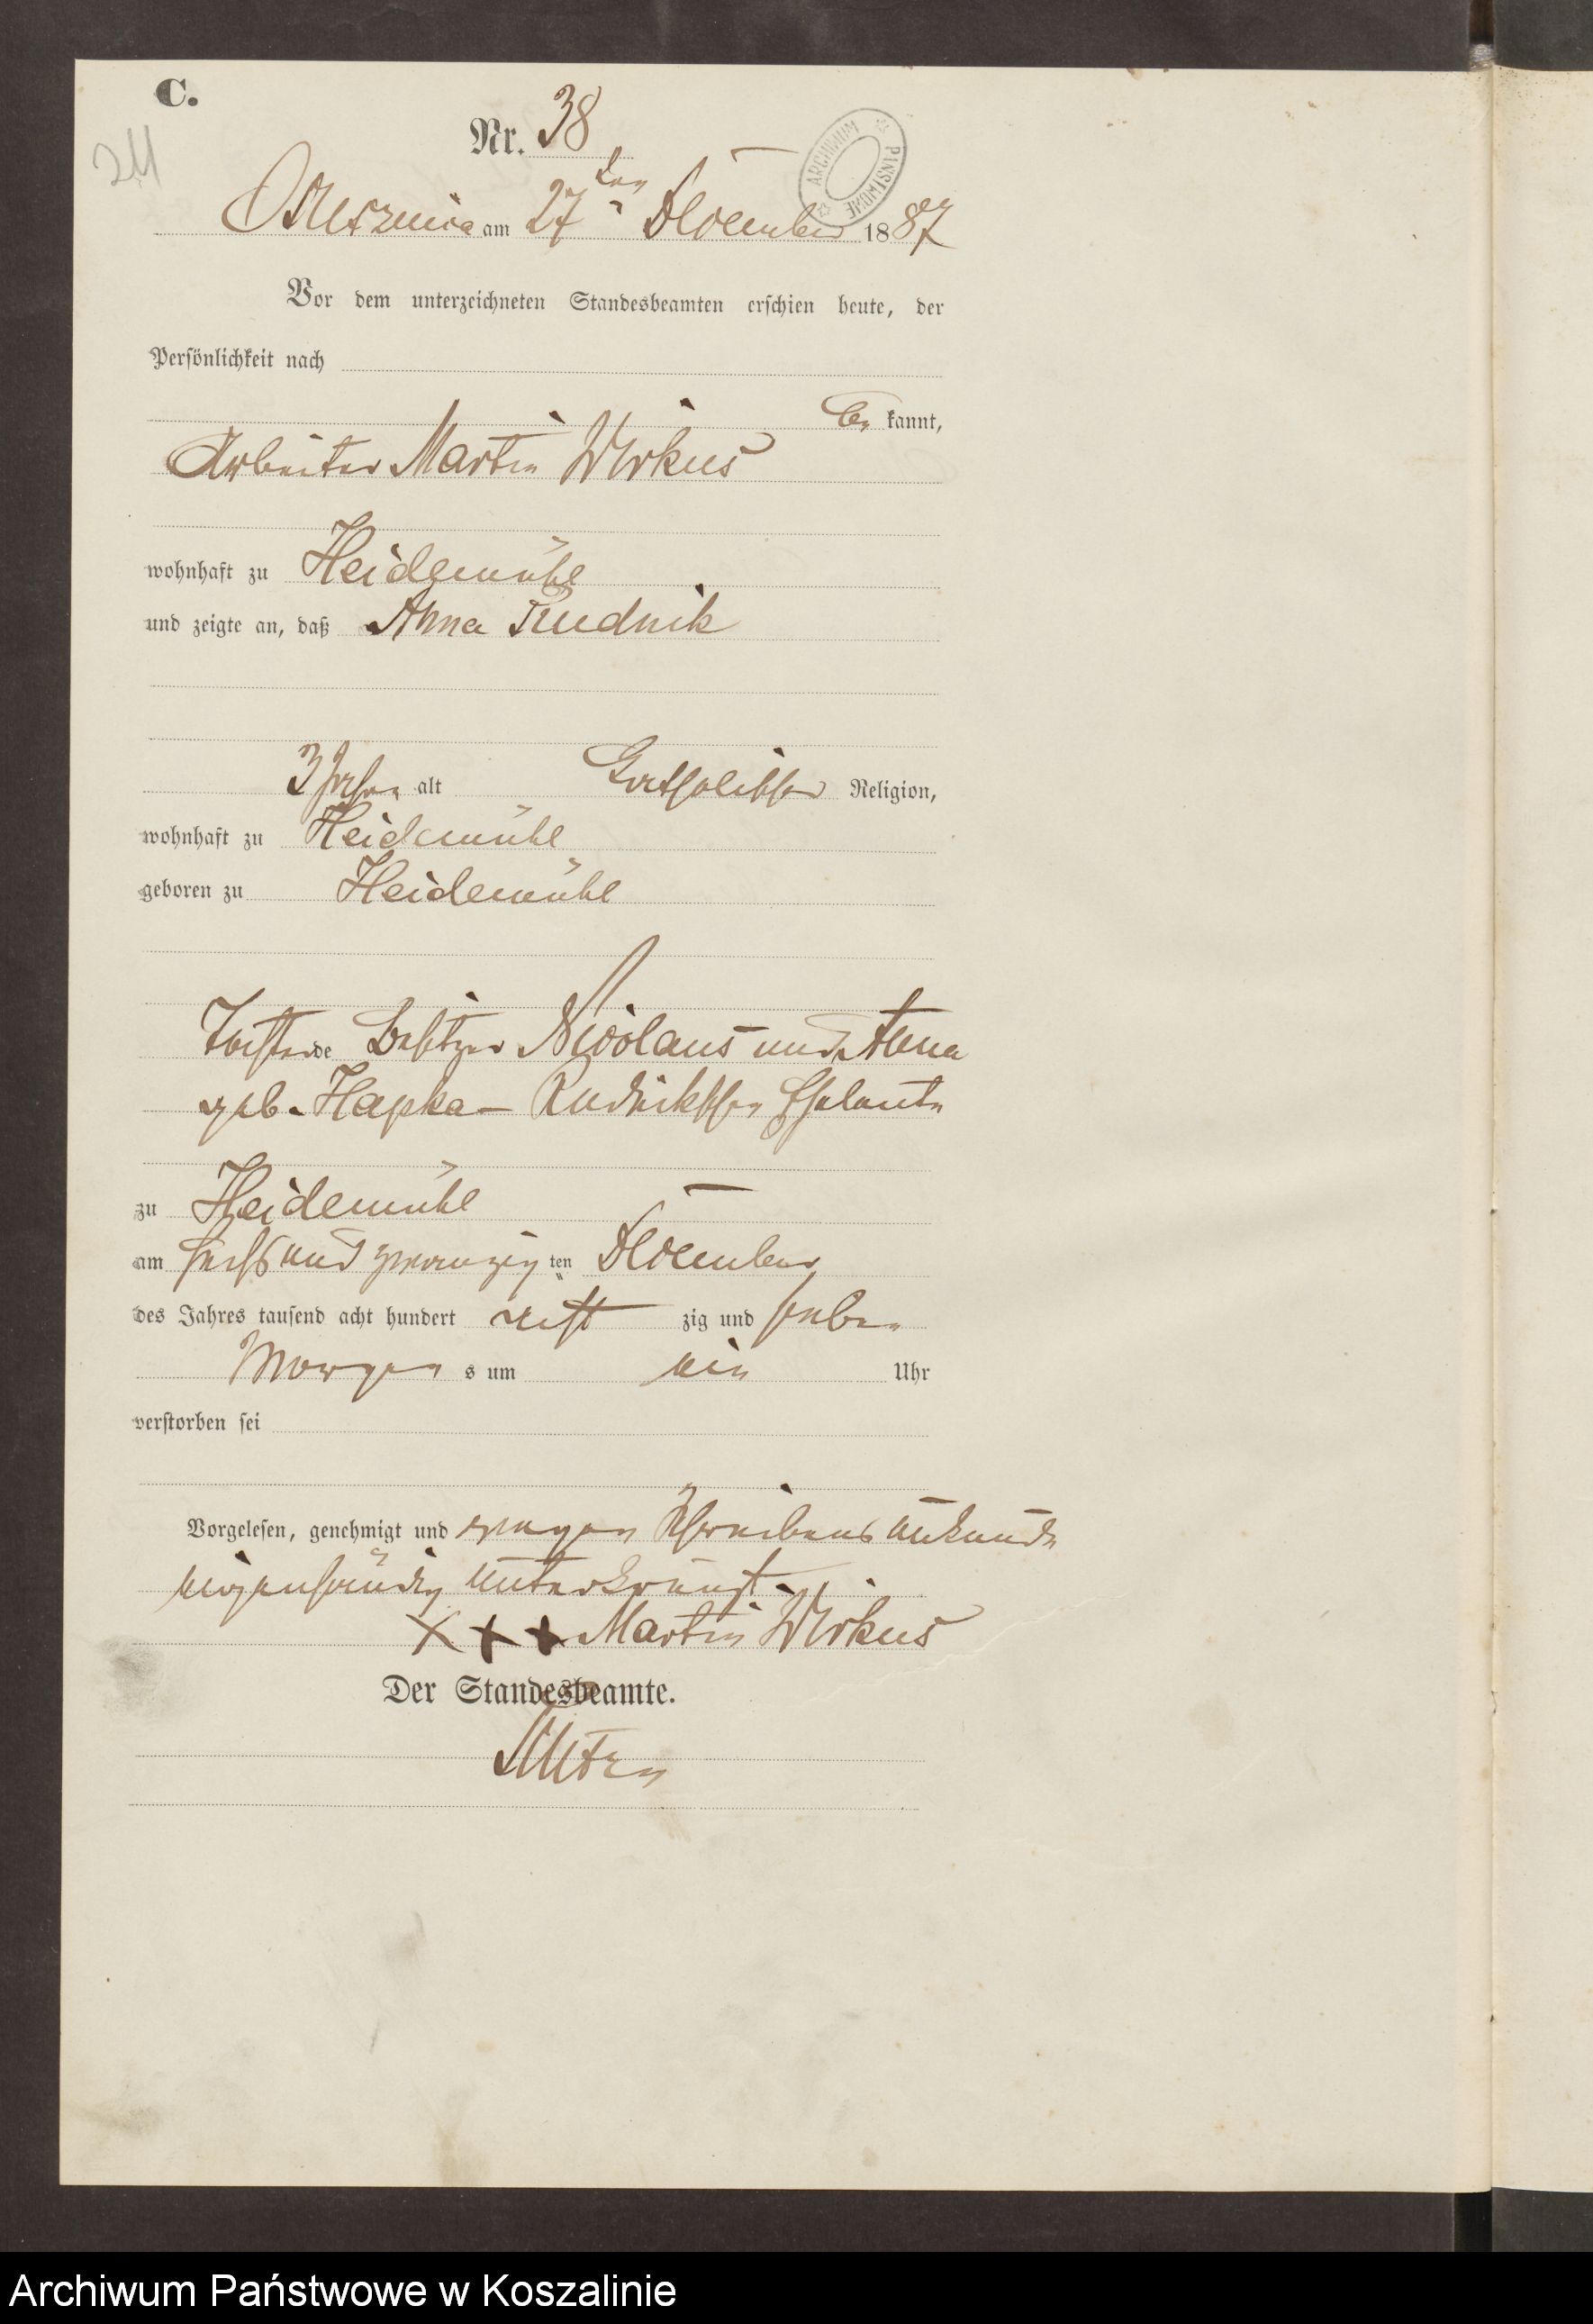 C.
Nr. 38
24
ARCHIWUM PAŃSTWOWE
am 27ten December 1887
Vor dem unterzeichneten Standesbeamten erſchien heute, der
Perſönlichkeit nach
be kannt,
Arbeiter Martin Wirkus
wohnhaft zu Heidemühl
und zeigte an, daß Anna Rudnik
3 Jahre alt Catholischer Religion,
wohnhaft zu Heidemühl
geboren zu Heidemühl
Tochter de Besitzer Nicolaus und Anna
geb. Hapka - Rudnickschen Eheleute
zu Heidemühl
am sechs und zwanzig ten December
des Jahres tauſend acht hundert acht zig und sieben
Morgen s um ein Uhr
verſtorben ſei
Vorgeleſen, genehmigt und wegen Schreibens unkunde
eigenhändig unterkreuzt.
X X X Martin Wirkus
Der Standesbeamte.
Archiwum Państwowe w Koszalinie